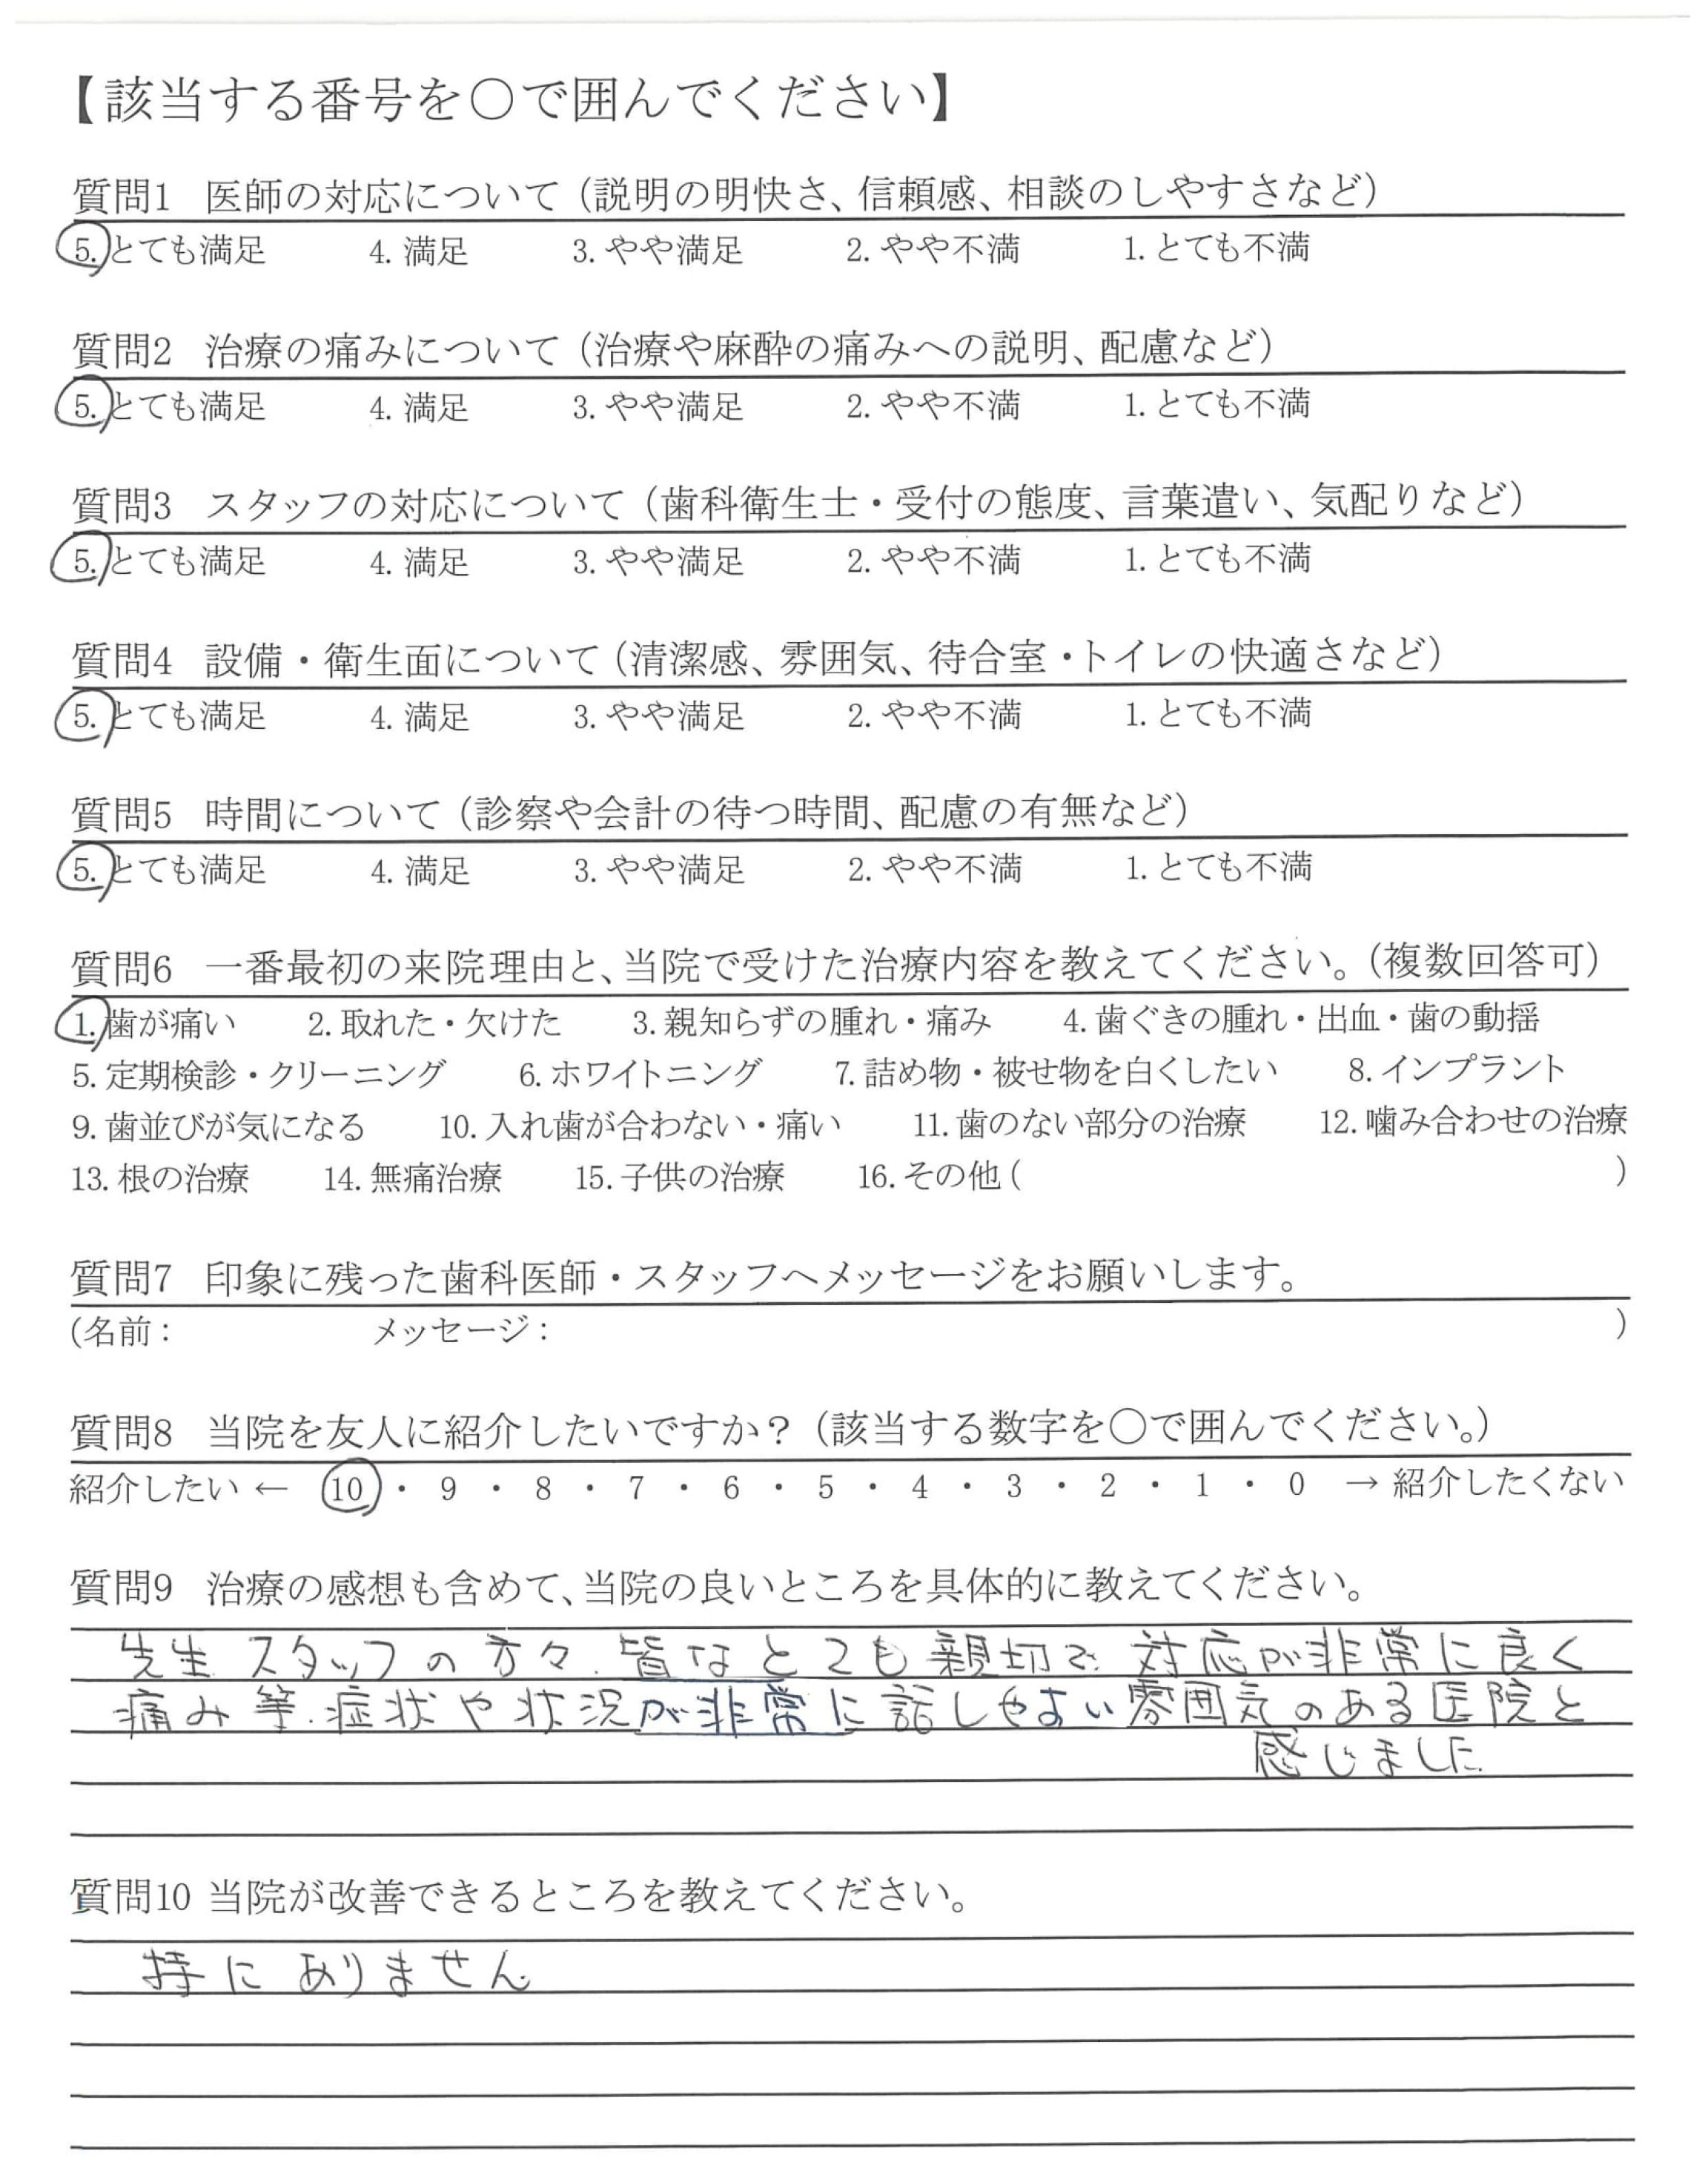 【該当する番号を〇で囲んでください】
質問1 医師の対応について（説明の明快さ、信頼感、相談のしやすさなど）
5. とても満足 4. 満足 3. やや満足 2. やや不満 1. とても不満
質問2 治療の痛みについて（治療や麻酔の痛みへの説明、配慮など）
5. とても満足 4. 満足 3. やや満足 2. やや不満 1. とても不満
質問3 スタッフの対応について（歯科衛生士・受付の態度、言葉遣い、気配りなど）
5. とても満足 4. 満足 3. やや満足 2. やや不満 1. とても不満
質問4 設備・衛生面について（清潔感、雰囲気、待合室・トイレの快適さなど）
5. とても満足 4. 満足 3. やや満足 2. やや不満 1. とても不満
質問5 時間について（診察や会計の待つ時間、配慮の有無など）
5. とても満足 4. 満足 3. やや満足 2. やや不満 1. とても不満
質問6 一番最初の来院理由と、当院で受けた治療内容を教えてください。（複数回答可）
1. 歯が痛い 2. 取れた・欠けた 3. 親知らずの腫れ・痛み 4. 歯ぐきの腫れ・出血・歯の動揺
5. 定期検診・クリーニング 6. ホワイトニング 7. 詰め物・被せ物を白くしたい 8. インプラント
9. 歯並びが気になる 10. 入れ歯が合わない・痛い 11. 歯のない部分の治療 12. 噛み合わせの治療
13. 根の治療 14. 無痛治療 15. 子供の治療 16. その他（ ）
質問7 印象に残った歯科医師・スタッフへメッセージをお願いします。
（名前： メッセージ： ）
質問8 当院を友人に紹介したいですか？（該当する数字を〇で囲んでください。）
紹介したい ← 10 ・ 9 ・ 8 ・ 7 ・ 6 ・ 5 ・ 4 ・ 3 ・ 2 ・ 1 ・ 0 → 紹介したくない
質問9 治療の感想も含めて、当院の良いところを具体的に教えてください。
先生 スタッフの方々、皆なとても親切で、対応が非常に良く
痛み等、症状や状況が非常に話しやすい雰囲気のある医院と
感じました
質問10 当院が改善できるところを教えてください。
特にありません